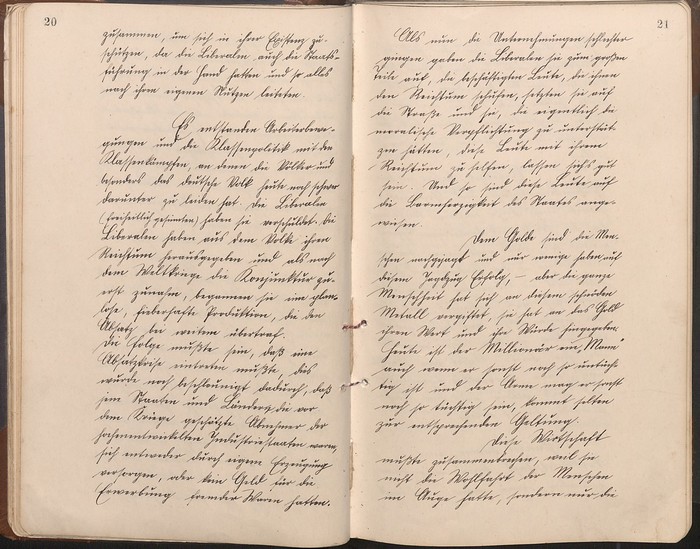 20
zusammen, um sich in ihrer Existenz zu
schützen, da die Liberalen auch die Staats-
führung in der Hand hatten und so alles
nach ihrem eigenen Nutzen leiteten.
Es entstanden Arbeiterbewe-
gungen und die Klassenpolitik mit den
Klassenkämpfen, an denen die Völker und
besonders das deutsche Volk heute noch schwer
darunter zu leiden hat. Die Liberalen
(freiheitlich gesinnten) haben sie verschuldet. Die
Liberalen haben aus dem Volke ihren
Reichtum herausgegeben und als nach
dem Weltkriege die Konjunktur zu-
erst zunahm, begannen sie eine plan-
lose, fieberhafte Produktion, die den
Absatz bei weitem übertraf.
Die Folge mußte sein, daß eine
Absatzkrise eintreten mußte, dies
wurde noch beschleunigt dadurch, daß
jene Staaten und Länder, die vor
dem Kriege geschätzte Abnehmer der
hochentwickelten Industriestaaten waren,
sich entweder durch eigene Erzeugung
versorgen, oder kein Geld für die
Erwerbung fremder Waren hatten.
21
Als nun die Unternehmungen schlechter
gingen gaben die Liberalen sie zum großen
Teile auf, die beschäftigten Leute, die ihnen
den Reichtum schufen, setzten sie auf
die Straße und sie, die eigentlich die
moralische Verpflichtung zu unterstüt-
zen hätten, diese Leute mit ihrem
Reichtum zu helfen, lassen sichs gut
sein. Und so sind diese Leute auf
die Barmherzigkeit des Staates ange-
wiesen.
Dem Gelde sind die Men-
schen nachgejagt und nur wenige haben auf
diesem Jagdzug Erfolg, – aber die ganze
Menschheit hat sich an diesem schnöden
Metall vergiftet, sie hat an das Geld
ihren Wert und ihre Würde hingegeben.
Heute ist der Millionär ein „Mann"
auch wenn er sonst noch so untüch-
tig ist und der Arme mag er sonst
noch so tüchtig sein, kommt selten
zur entsprechenden Geltung.
Diese Wirtschaft
mußte zusammenbrechen, weil sie
nicht die Wohlfahrt der Menschen
im Auge hatte, sondern nur die